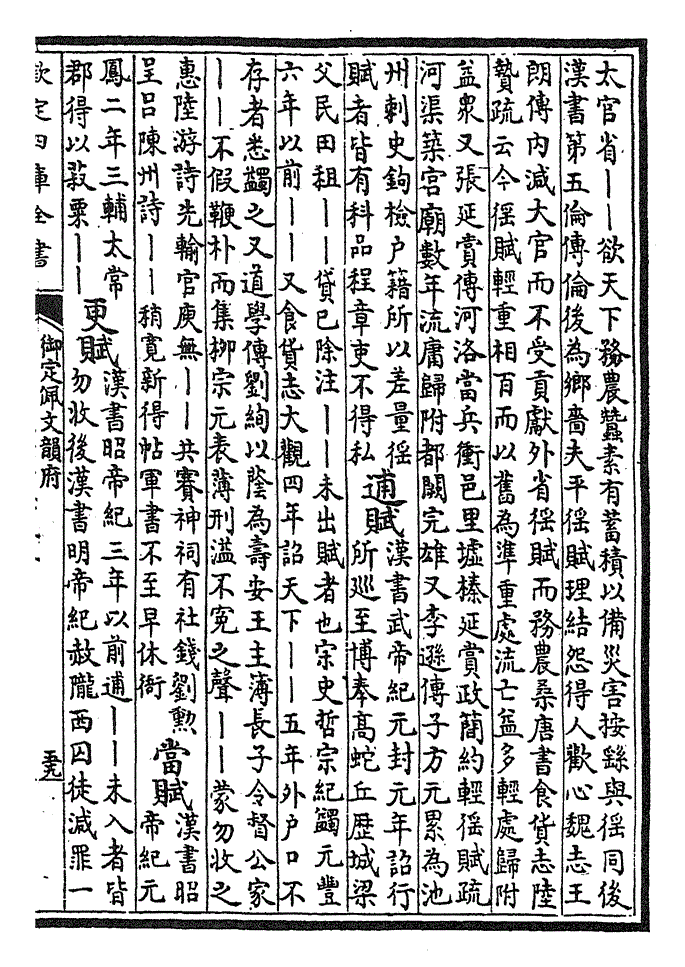 太官省——欲天下務農蠶素有蓄積以備災害按繇與徭同後
漢書第五倫傳倫後為鄉嗇夫平徭賦理結怨得人歡心魏志王
朗傳內減大官而不受貢獻外省徭賦而務農桑唐書食貨志陸
贄疏云今徭賦輕重相百而以舊為準重處流亡益多輕處歸附
益衆又張延賞傳河洛當兵衝邑里墟榛延賞政簡約輕徭賦疏
河渠築宮廟數年流庸歸附都闕完雄又李遜傳子方元累為池
州刺史鉤檢户籍所以差量徭
賦者皆有科品程章吏不得私
逋賦
漢書武帝紀元封元年詔行
所廵至博奉髙蛇丘歴城梁
父民田租——貸已除注——未出賦者也宋史哲宗紀蠲元豐
六年以前——又食貨志大觀四年詔天下——五年外户口不
存者悉蠲之又道學傳劉絢以蔭為壽安王主簿長子令督公家
——不假鞭朴而集柳宗元表薄刑溢不寃之聲——蒙勿收之
惠陸游詩先輸官庾無——共賽神祠有社錢劉勲
呈呂陳州詩——稍寬新得帖軍書不至早休衙
當賦
漢書昭
帝紀元
鳳二年三輔太常
郡得以菽粟——
更賦
漢書昭帝紀三年以前逋——未入者皆
勿收後漢書明帝紀赦隴西囚徒減罪一
欽定四庫全書
御定佩文韻府
五九